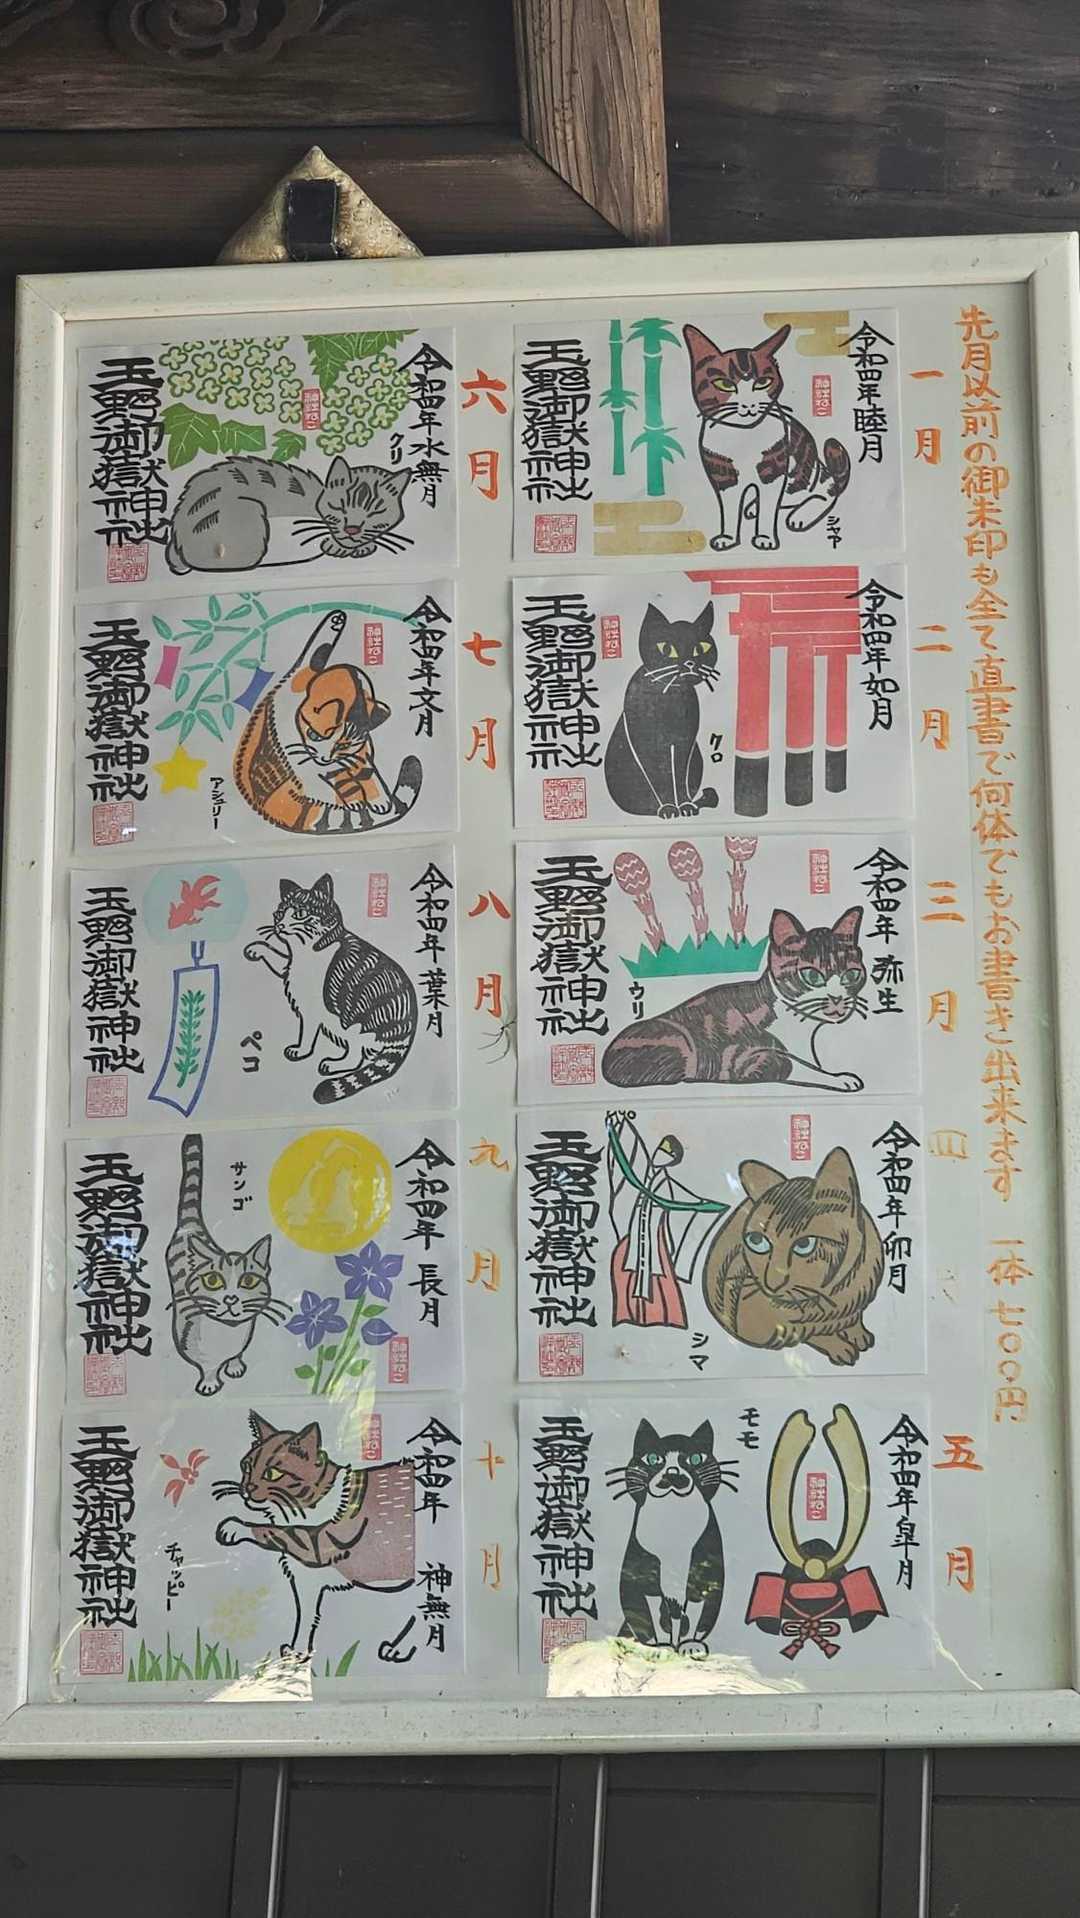 先月以前の御朱印も全て直書で何体でもお書き出来ます 一体 七〇〇円
一月
令和四年睦月
神社ねこ
シャア
玉野御嶽神社
二月
令和四年如月
クロ
神社ねこ
玉野御嶽神社
三月
令和四年 弥生
神社ねこ
ウリ
玉野御嶽神社
四月
令和四年卯月
神社ねこ
シマ
玉野御嶽神社
五月
令和四年皐月
神社ねこ
モモ
玉野御嶽神社
六月
令和四年水無月
クリ
神社ねこ
玉野御嶽神社
七月
令和四年文月
神社ねこ
アシュリー
玉野御嶽神社
八月
令和四年葉月
神社ねこ
ペコ
玉野御嶽神社
九月
令和四年 長月
神社ねこ
サンゴ
玉野御嶽神社
十月
令和四年 神無月
神社ねこ
チャッピー
玉野御嶽神社